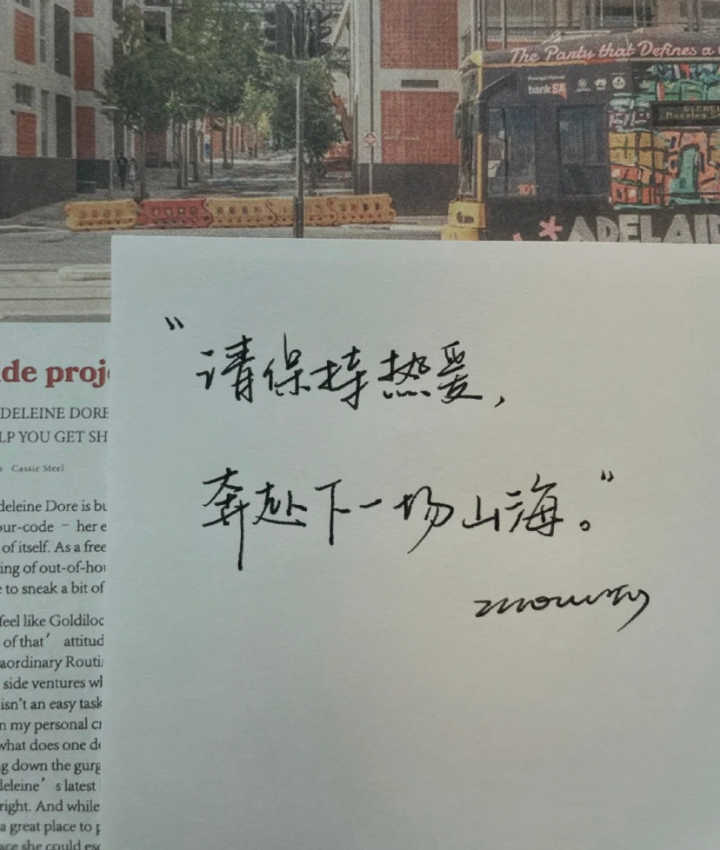 The Party that Defines a
bankSA
101
ADELAID
"请保持热爱，
奔赴下一场山海。"
de proj
DELEINE DORE
LP YOU GET SH
Cassie Steel
deleine Dore is bu
our-code – her e
of itself. As a free
ing of out-of-hou
e to sneak a bit of
feel like Goldiloc
of that' attitud
aordinary Routi
side ventures wh
isn't an easy task
n my personal cr
what does one do
g down the gurg
deleine's latest
right. And while
a great place to p
ace she could esc